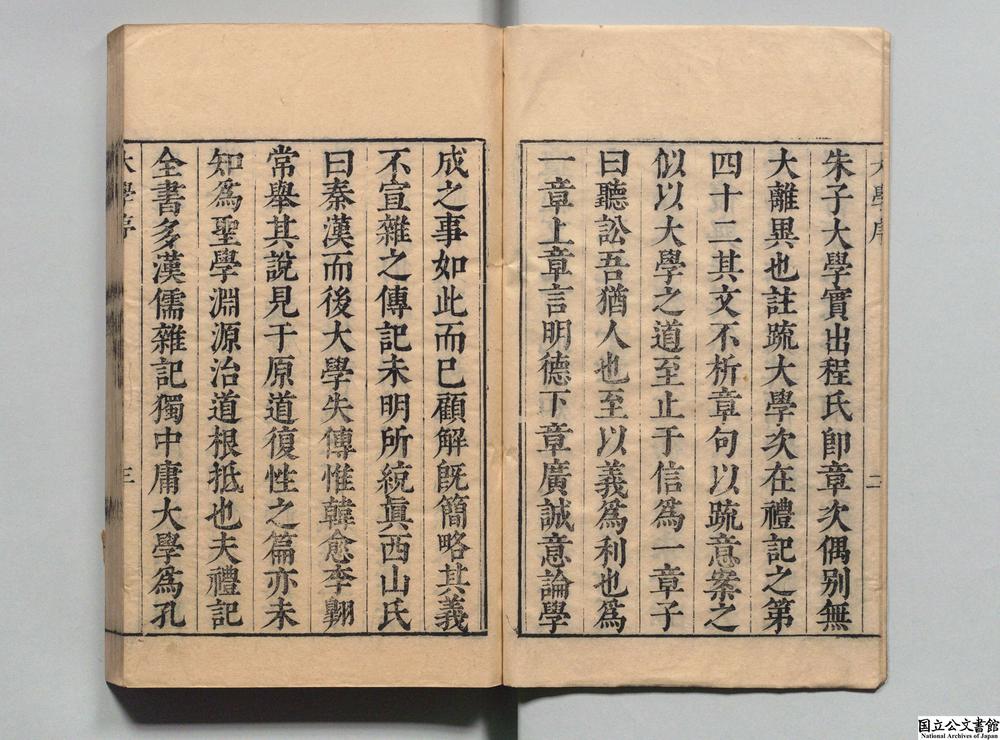 大學序
二
朱子大學實出程氏卽章次偶別無
大離異也註疏大學次在禮記之第
四十二其文不析章句以疏意案之
似以大學之道至止于信爲一章子
曰聽訟吾猶人也至以義爲利也爲
一章上章言明德下章廣誠意論學
成之事如此而已顧解旣簡略其義
不宣雜之傳記未明所統眞西山氏
曰秦漢而後大學失傳惟韓愈李翺
常舉其說見于原道復性之篇亦未
知爲聖學淵源治道根抵也夫禮記
全書多漢儒雜記獨中庸大學爲孔
大學序
三
国立公文書館
National Archives of Japan